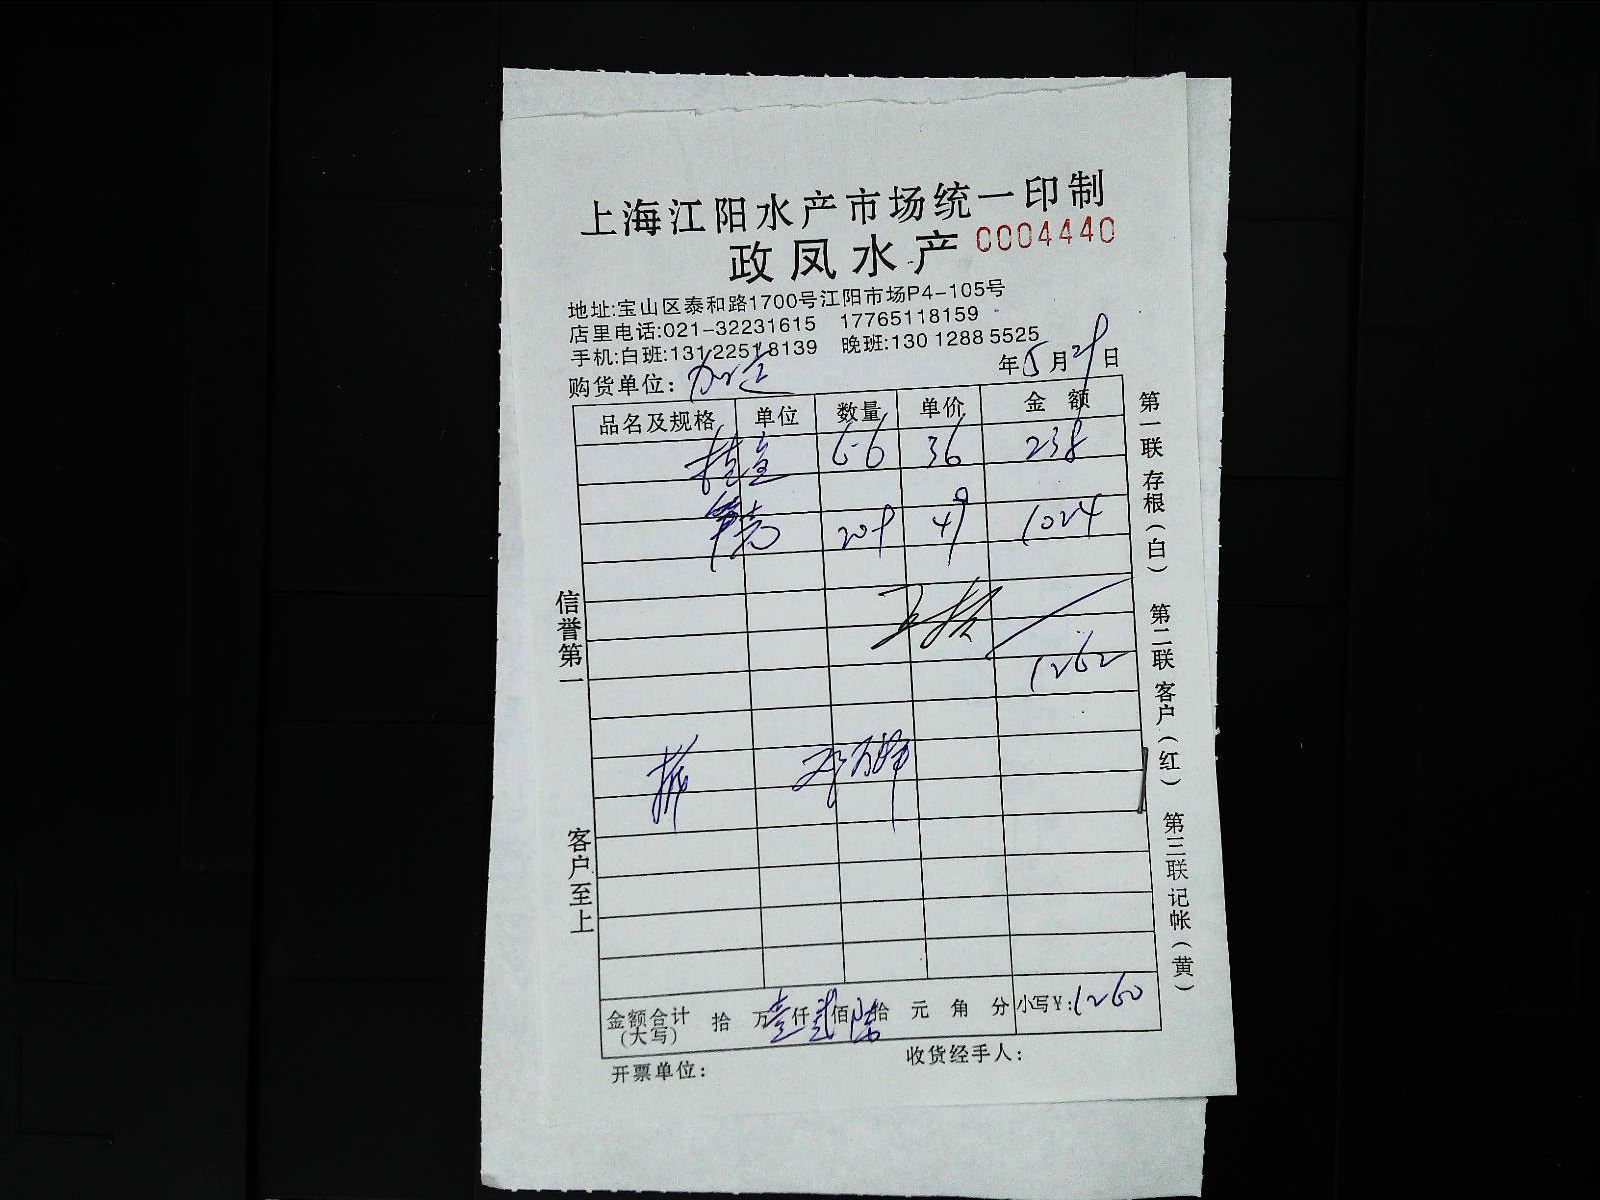 上海江阳水产市场统一印制
政凤水产 0004440
地址:宝山区泰和路1700号江阳市场P4-105号
店里电话:021-32231615 17765118159
手机:白班:131 2251 8139 晚班:130 1288 5525
购货单位: 年5月29日
品名及规格 单位 数量 单价 金额
6.6 36 238
209 49 1024
1262
金额合计(大写) 拾 万壹仟贰佰陆拾 元 角 分 小写¥:1260
开票单位: 收货经手人:
信誉第一
客户至上
第一联 存根(白) 第二联 客户(红) 第三联 记帐(黄)